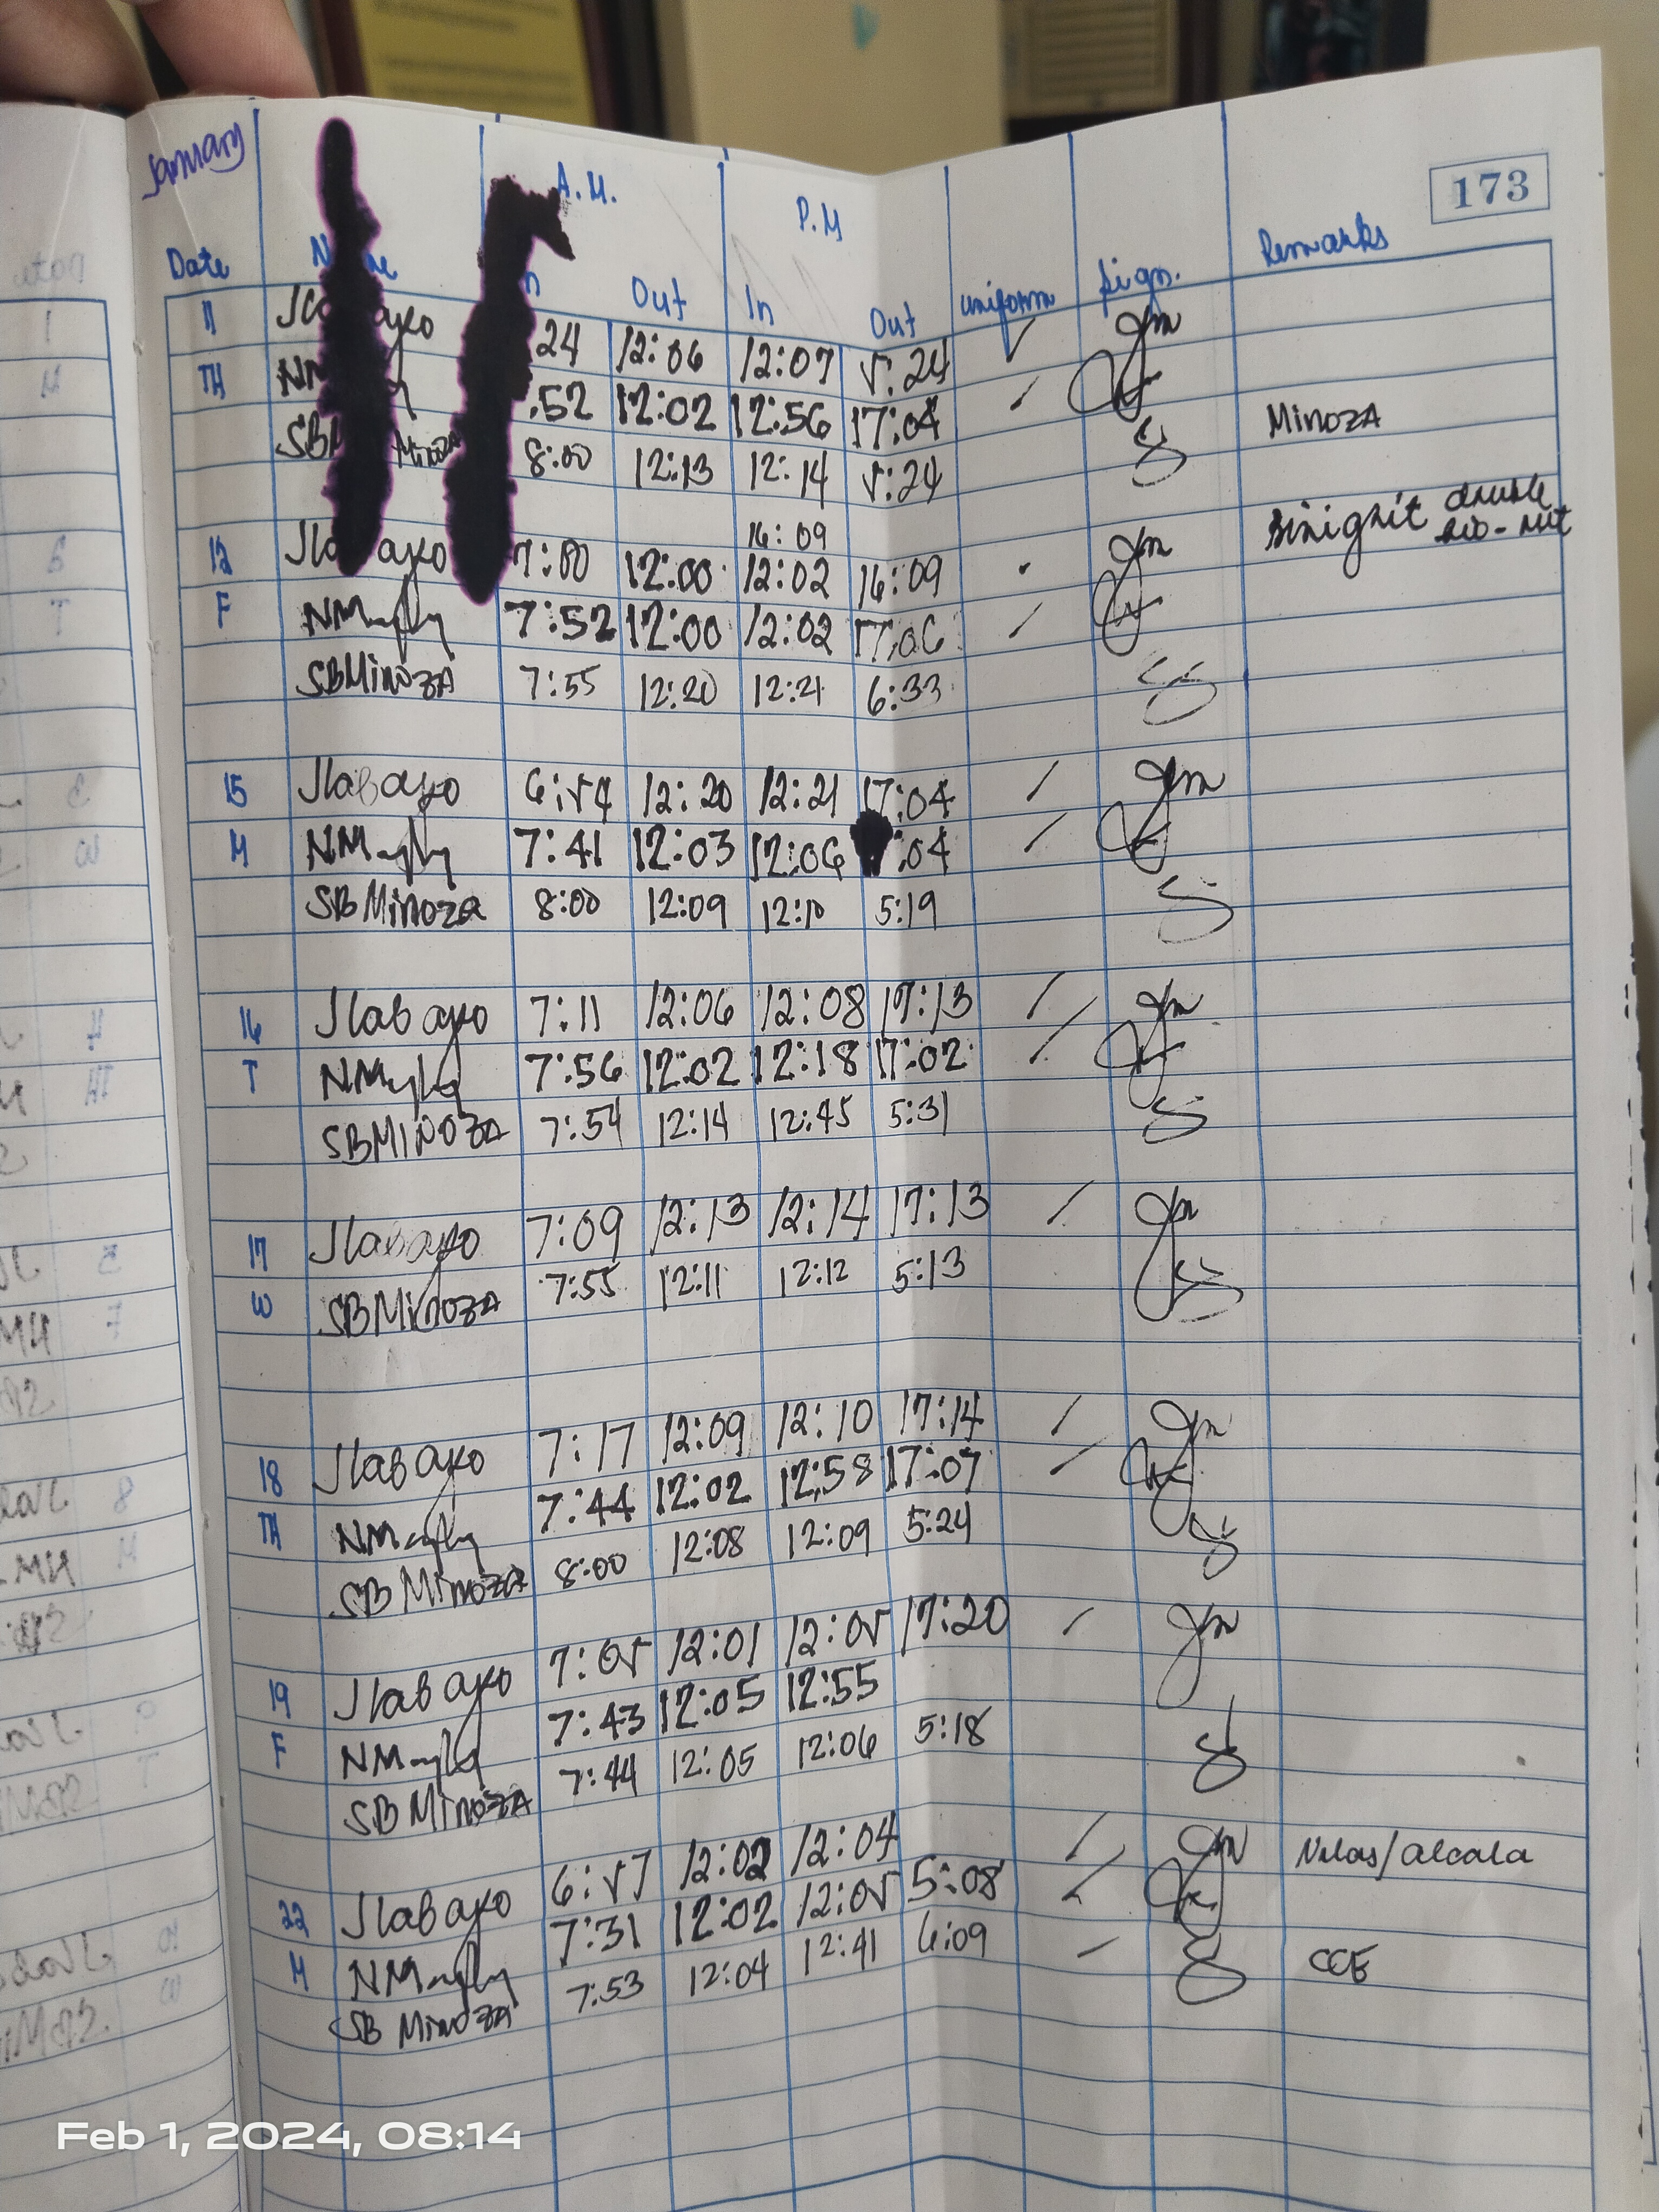 January
173
A.M. P.M
Date Out In Out uniform Sign. Remarks
11 24 12:06 12:07 5:24
TH :52 12:02 12:56 17:04
Minoza 8:00 12:13 12:14 5:24 Minoza
16:09
12 7:00 12:00 12:02 16:09
F 7:52 12:00 12:02 17:06
SBMinoza 7:55 12:20 12:21 6:33
15 Jlabayo 6:54 12:20 12:21 17:04
M 7:41 12:03 12:06 :04
SBMinoza 8:00 12:09 12:10 5:19
16 Jlabayo 7:11 12:06 12:08 17:13
T 7:56 12:02 12:18 17:02
SBMINOZA 7:54 12:14 12:45 5:31
17 Jlabayo 7:09 12:13 12:14 17:13
W SBMinoza 7:55 12:11 12:12 5:13
18 Jlabayo 7:17 12:09 12:10 17:14
TH 7:44 12:02 12:58 17:07
SB Minoza 8:00 12:08 12:09 5:24
19 Jlabayo 7:05 12:01 12:05 17:20
F 7:43 12:05 12:55
SB Minoza 7:44 12:05 12:06 5:18
22 Jlabayo 6:57 12:02 12:04
M 7:31 12:02 12:05 5:08
SB Minoza 7:53 12:04 12:41 6:09
Feb 1, 2024, 08:14